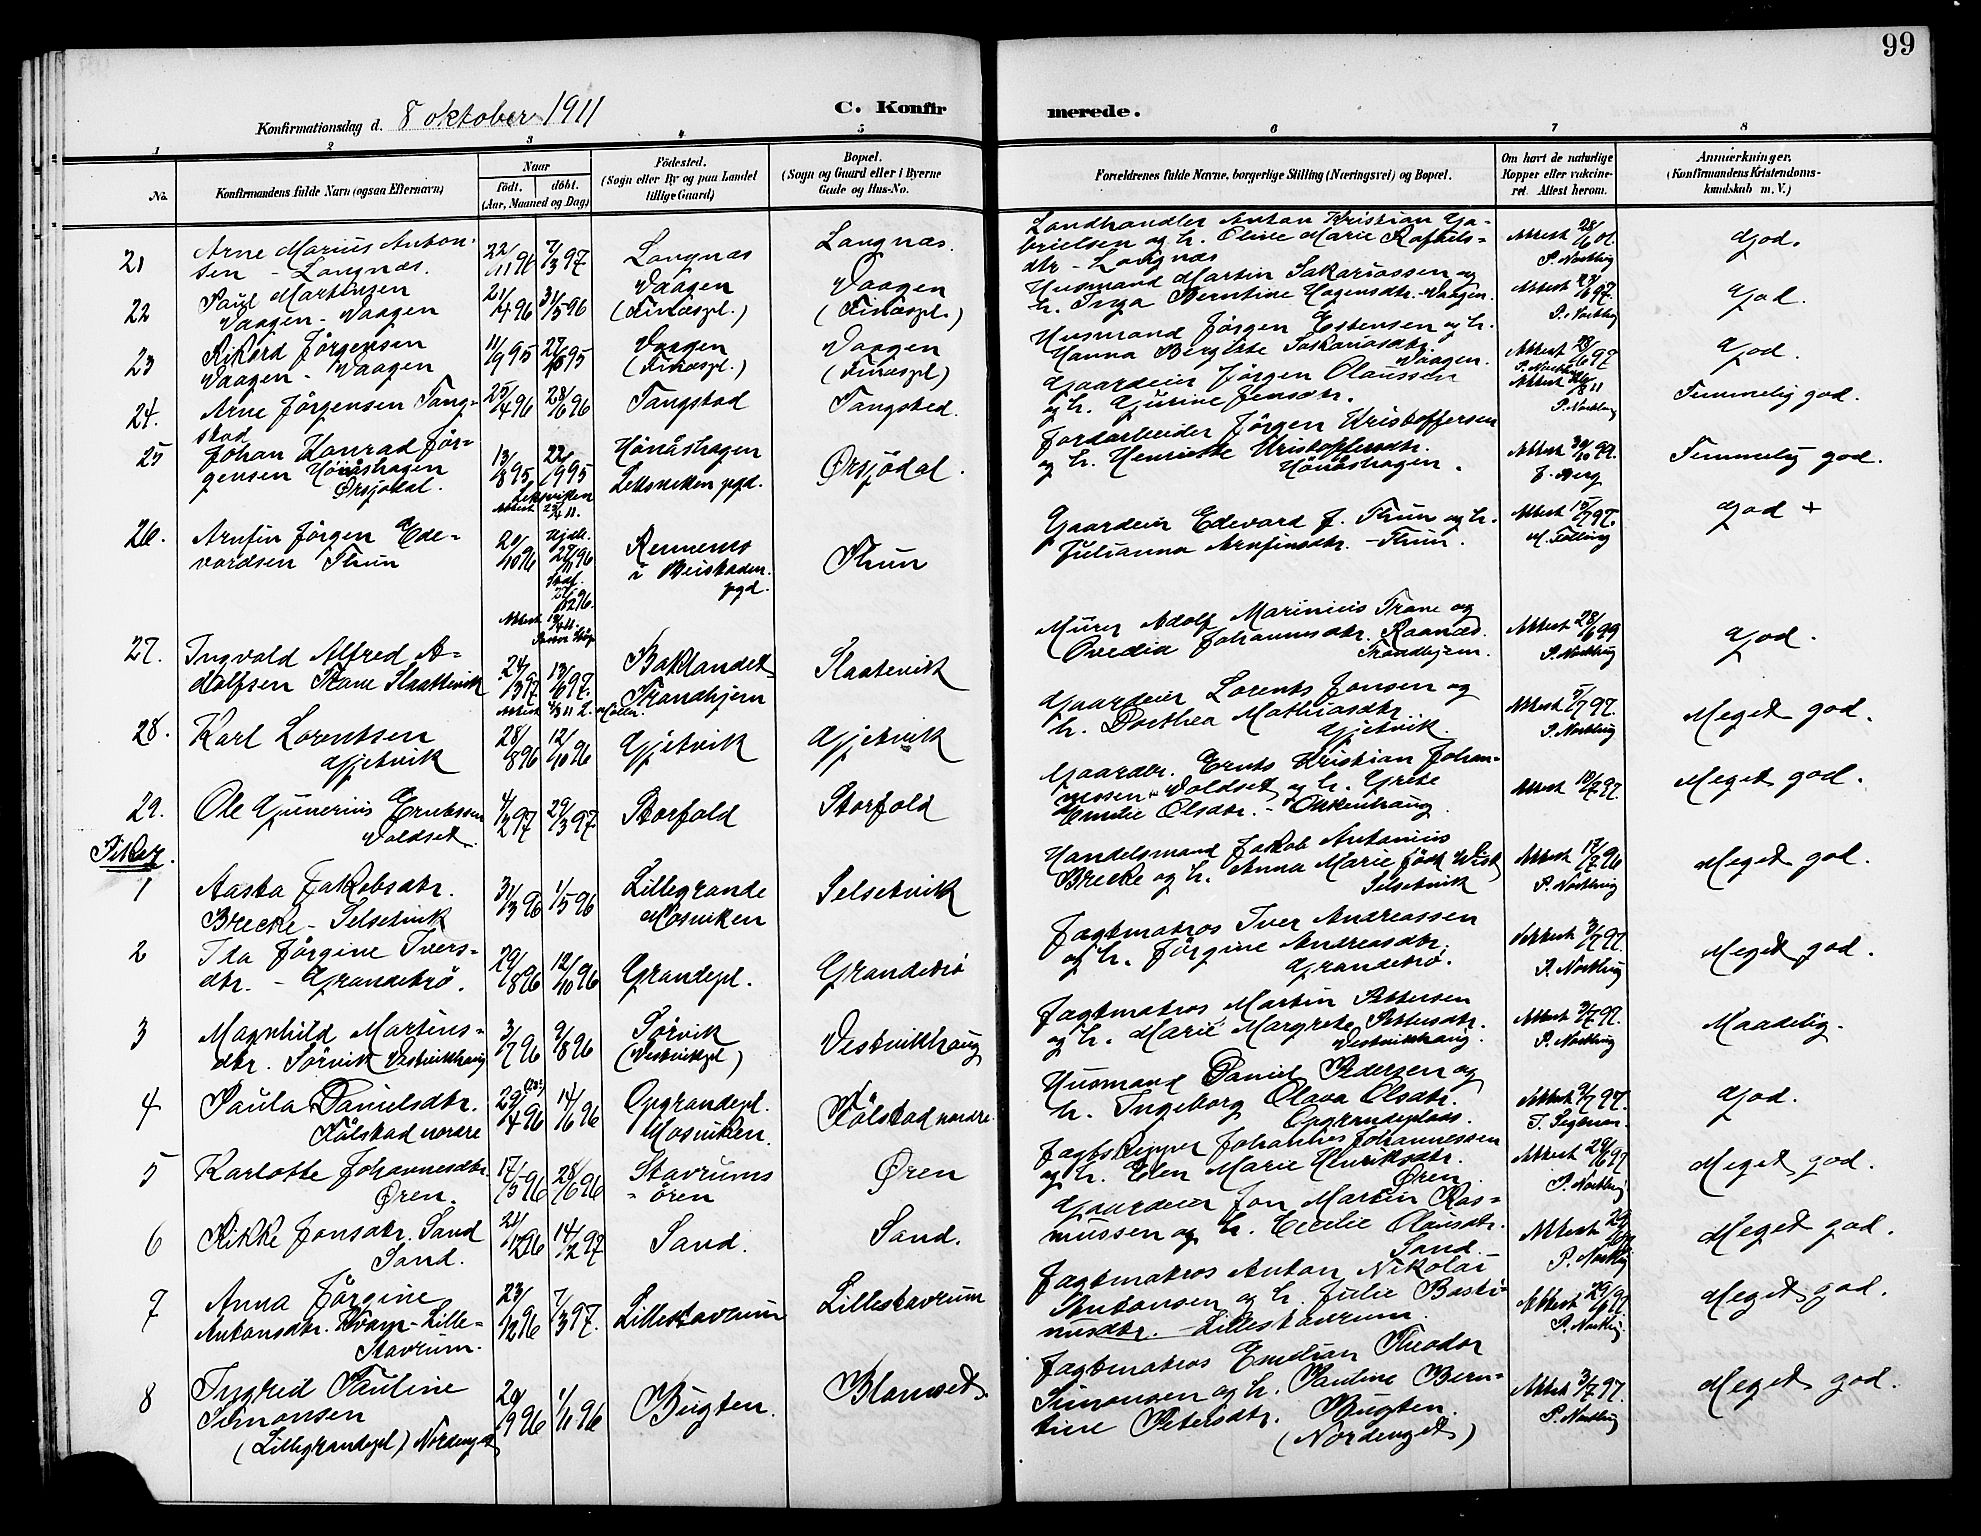 99
Konfirmationsdag d. 8 oktober 1911
C. Konfirmerede.
1 2 3 4 5 6 7 8
No.
Konfirmandens fulde Navn (ogsaa Efternavn)
Naar
födt. döbt.
(Aar, Maaned og Dag)
Födested.
(Sogn eller By og paa Landet
tillige Gaard)
Bopæl.
(Sogn og Gaard eller i Byerne
Gade og Hus-No.
Forældrenes fulde Navne, borgerlige Stilling (Næringsvei) og Bopæl.
Om havt de naturlige
Kopper eller vaccine-
ret. Attest herom.
Anmærkninger.
(Konfirmandens Kristendoms-
kundskab m. V.)
21 Arne Marius Anton-
sen - Langnæs.
22/11 96 7/3 97 Langnæs Langnæs.
Landhandler Anton Kristian Ga-
brielsen og h. Olive Marie Rafaels-
dtr - Langnæs
Attest 28/6 01.
P. Nordbug
God.
22 Paul Martinsen
Vaagen - Vaagen
21/4 96 31/5 96
Vaagen
(Finæspl.)
Vaagen
(Finæspl.)
Husmand Martin Sakariassen og
h. Inga Berntine Hagensdtr. - Vaagen.
God.
23 Rikard Jörgensen
Vaagen - Vaagen
11/9 95
Vaagen
(Finæspl.)
Vaagen
(Finæspl)
Husmand Jörgen Estensen og h.
Hanna Bergitte Sakariasdtr.
Vaagen.
God.
24. Arne Jörgensen Tang-
stad
25/4 96 28/6 96 Tangstad Tangstad.
Gaardeier Jörgen Olaussen
og h. Gjurine Jensdtr.
Temmelig god.
25 Johan Konrad Jör-
gensen Hönåshagen
Ørsjödal.
13/8 95 22/9 95
Leksviken
Attest
Hönåshagen
Leksviken pgd.
Ørsjödal.
Jordarbeider Jörgen Kristoffersen
og h. Henriette Kristoffersdtr.
Hönåshagen.
Attest
J. Berg
Temmelig god.
26. Arnfin Jörgen Ede-
vardsen Thun
20/10 96
Hjdb.
Rennemo
i Beistaden
pgd.
Thun
Gaardeier Edevard J. Thun og h.
Julianna Arnfinsdtr. - Thun.
Attest 15/7 97.
M. Fölling
God +
27. Ingvald Alfred A-
dolfsen Trane Slaattevik
24/3 97 13/6 97.
Baklandet
Trondhjem
Slaatevik
Murer Adolf Marinius Trane og
Ovedia Johannesdtr. Raanæs.
Trondhjem.
Attest 28/6 99
P. Nordbug
God.
28. Karl Lorentsen
Gjetvik
28/8 96 12/10 96 Gjetvik Gjetvik
Gaardeier Lorents Jonsen og
h. Dorthea Mathiasdtr.
Gjetvik.
Attest 5/7 97.
P. Nordbug
Meget god.
29. Ole Gunerius Erntssen
Voldset
4/2 97 29/3 97 Storfold Storfold
Gaardbr. Ernts Kristian Johan-
nessen Voldset og h. Grete
Emilie Olsdtr. - Okkenhaug.
Meget god.
Piker.
1 Aasta Jakobsdtr.
Brecke - Selsetvik
31/3 96 1/5 96
Lillegrande
Mosviken
Selsetvik
Handelsmand Jakob Antonius
Brecke og h. Anna Marie född Wist
Selsetvik
P. Nordbug
Meget god.
2 Ida Jörgine Ivers-
dtr. - Grandetrö.
29/8 96 12/10 96 Grandepl. Grandetrö
Jagtmatros Iver Andreassen
og h. Jörgine Andreasdtr.
Grandetrö.
P. Nordbug
Meget god.
3 Magnhild Martins-
dtr. Sörvik Vestvikhaug
3/7 96 9/8 96
Sörvik
(Vestvikpl)
Vestvikhaug
Jagtmatros Martin Pettersen
og h. Marie Margrete Pettersdtr.
Vestvikhaug.
P. Nordbug
Maadelig.
4 Paula Danielsdtr.
Fölstad nordre
29/4 96 14/6 96
Opgrandepl.
Mosviken.
Fölstad nordre
Husmand Daniel Pedersen og
h. Ingeborg Olava Olsdtr.
Opgrandeplads.
God.
5 Karlotte Johannesdtr.
Øren.
17/5 96 28/6 96
Stavrums
ören
Øren
Jagtskipper Johannes Johannessen
og h. Elen Marie Henriksdtr.
Øren.
Attest 29/6 97
P. Nordbug
Meget god.
6 Rikke Jonsdtr. Sand
Sand.
14/2 97 Sand. Sand.
Gaardeier Jon Martin Ras-
mussen og h. Cecilie Olausdtr.
Sand.
P. Nordbug
Meget god.
7 Anna Jörgine
Antonsdtr. Kvam - Lille-
Stavrum.
23/12 96 7/3 97. Lillestavrum Lillestavrum
Jagtmatros Anton Nikolai
Antonsen og h. Julie Basti-
nusdtr. - Lillestavrum.
P. Nordbug.
Meget god.
8 Ingrid Pauline
Simonsen
(Lillegrandepl) Nordenget
20/9 96 1/11 96 Bugten. Blomset.
Jagtmatros Emelian Theodor
Simonsen og h. Pauline Bern-
tine Petersdtr. Bugten.
(Nordenget)
Attest 3/7 97.
P. Nordbug
Meget god.